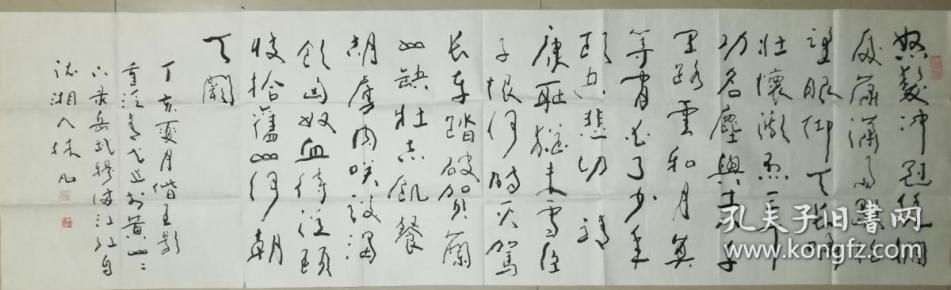 怒髮冲冠凭栏
处潇潇雨歇抬
望眼仰天长啸
壮怀激烈三十
功名塵與土八千
里路雲和月莫
等閒白了少年
头空悲切 靖
康耻猶未雪臣
子恨何時灭駕
长车踏破贺蘭
山缺壮志飢餐
胡虏肉笑谈渴
饮匈奴血待從頭
收拾舊山河朝
天闕
丁亥夏月偕王影
重游
录岳武穆满江红
湘人林凡
孔夫子旧书网
www.kongfz.com